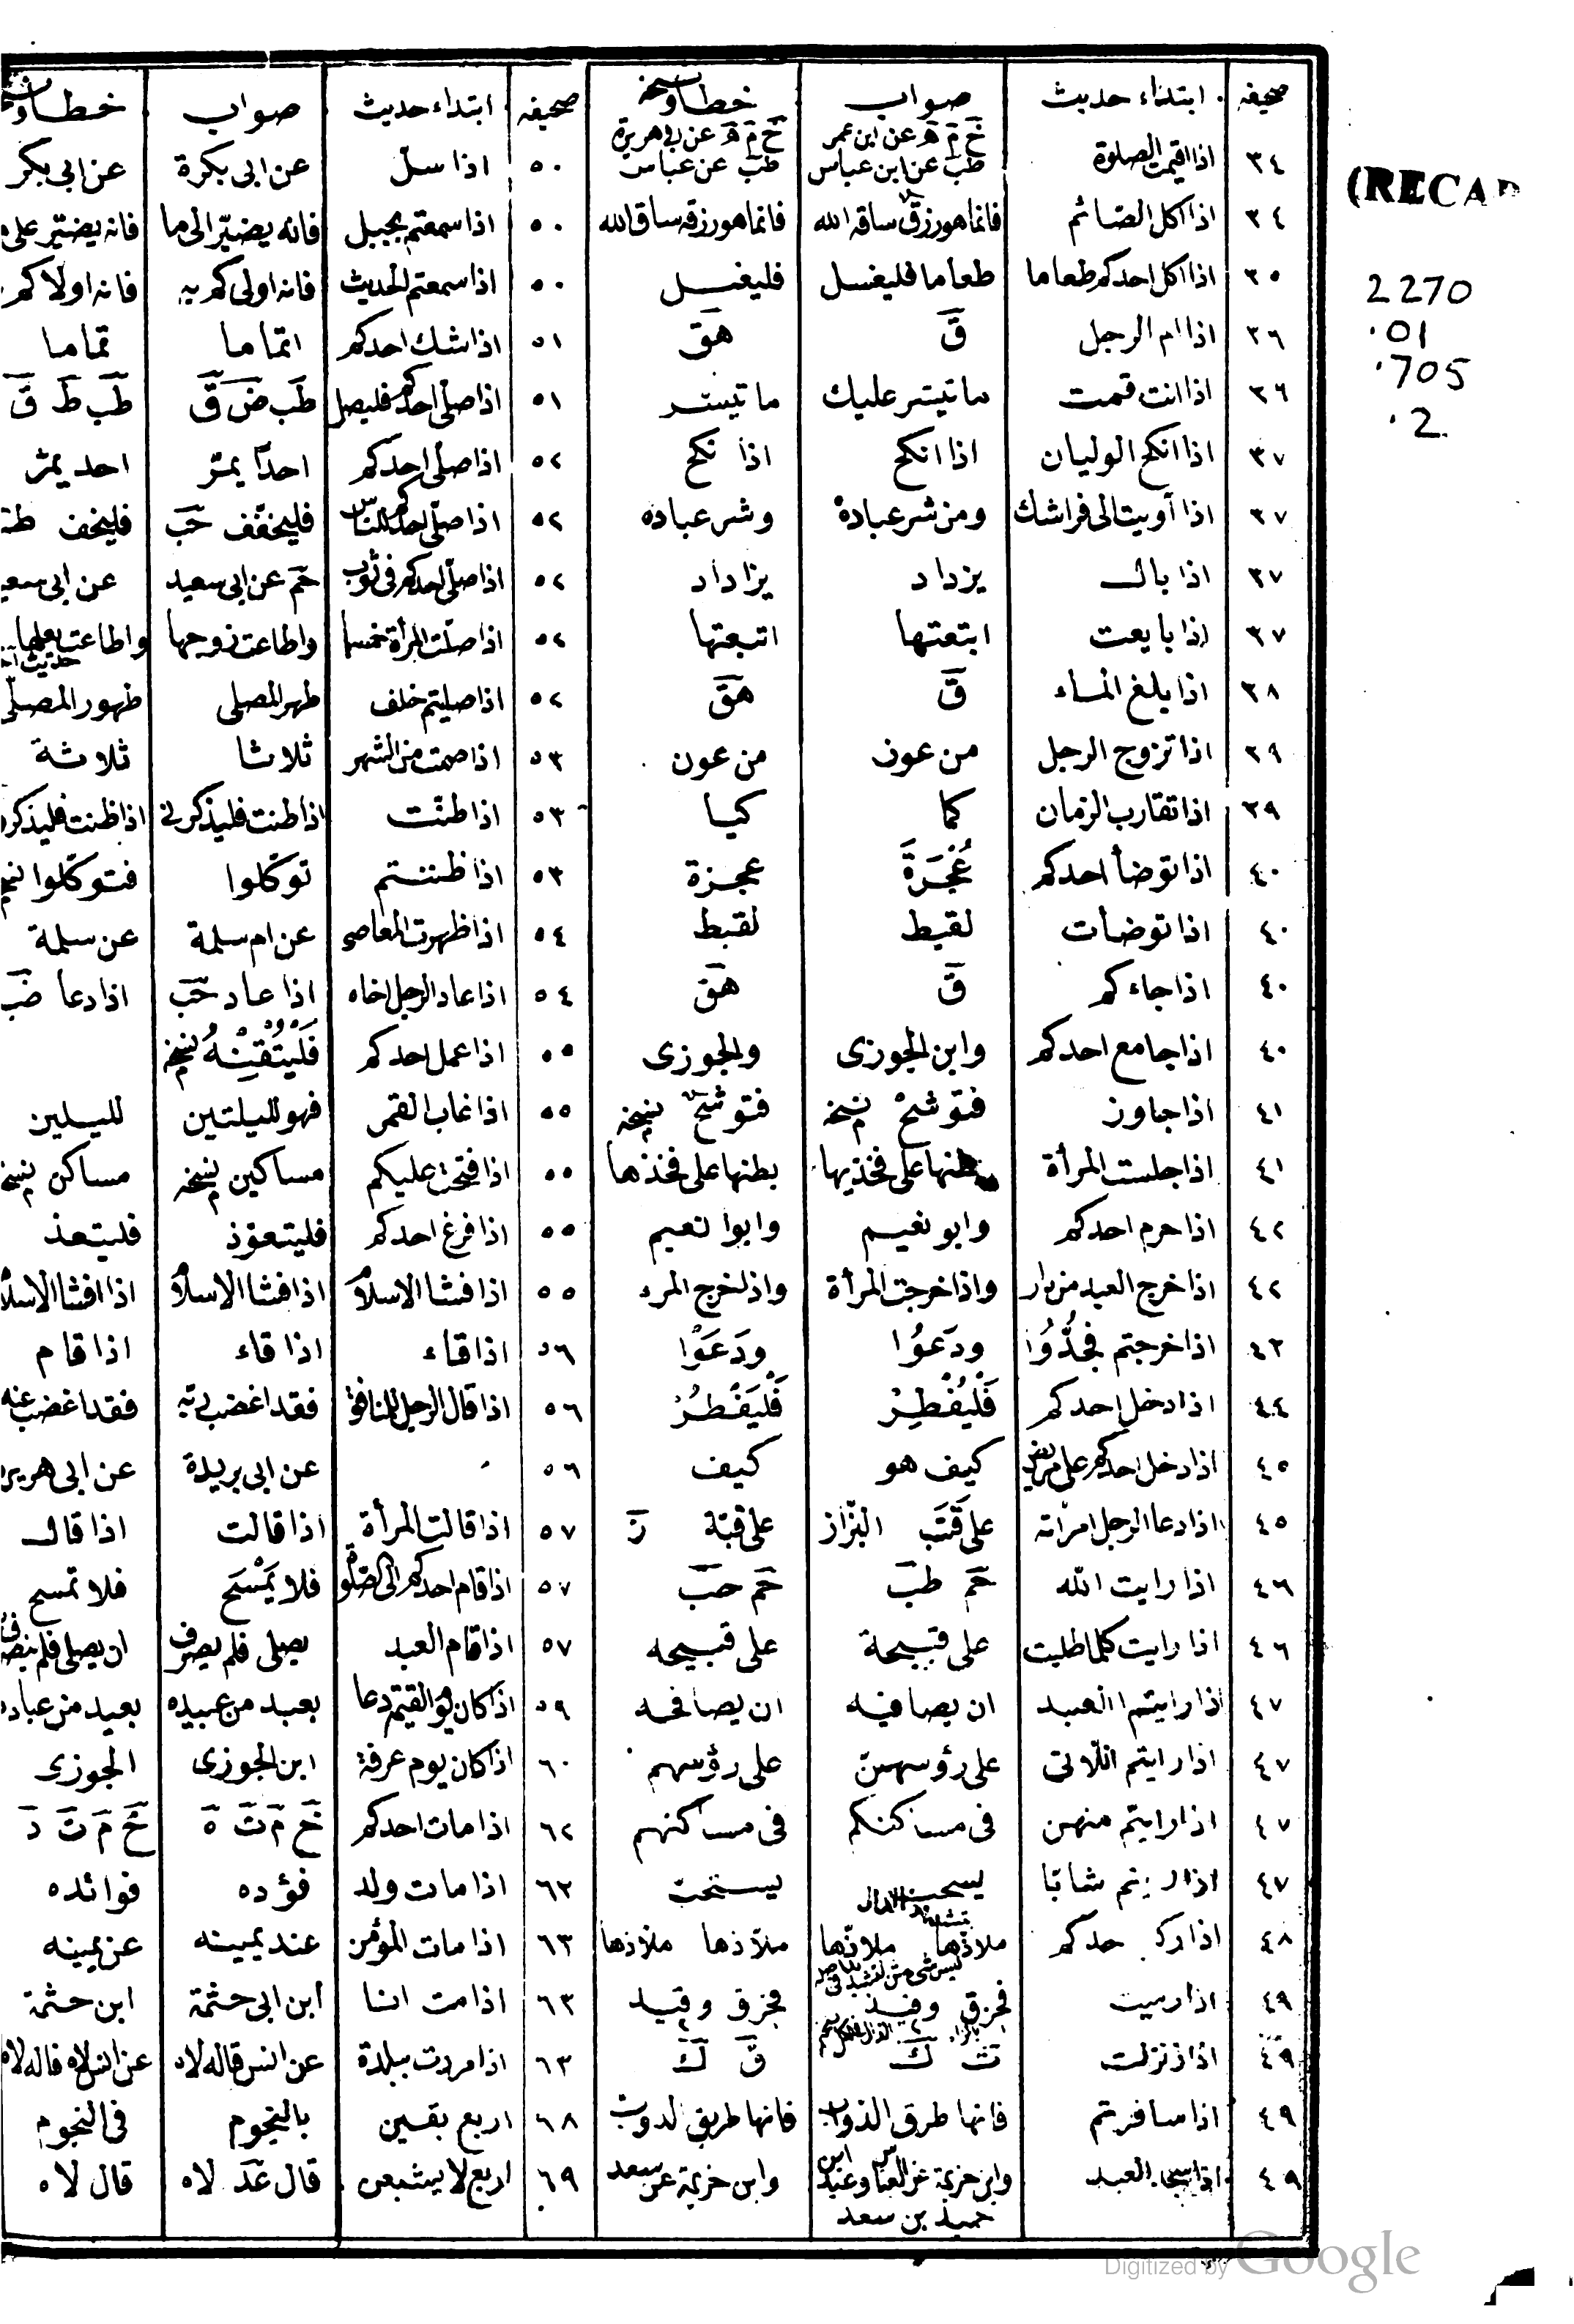 صحيفه ابتداء حديث صواب خطاو نسخه صحيفه ابتداء حديث صواب خطاو
٣٤ اذا اقيمت الصلوة خ م ه عن ابن عمر طب عن ابن عباس خ م ه عن ابى هريرة طب عن عباس ٥٠ اذا سل عن ابى بكرة عن ابى بكر
٣٤ اذا اكل الصائم فانما هو رزق ساقه الله فانما هو رزقه ساق الله ٥٠ اذا سمعتم بجبل فانه يصير الى ما فانه يصير على
٣٥ اذا اكل احدكم طعاما طعاما فليغسل فليغسل ٥٠ اذا سمعتم الحديث فانه اولى كم به فانه اولاكم
٣٦ اذا ام الرجل ق هق ٥١ اذا شك احدكم اتماما تماما
٣٦ اذا انت قمت ما تيسر عليك ما تيسر ٥١ اذا صلى احدكم فليصل طب ض ق طب ط ق
٣٧ اذا انكح الوليان اذا انكح اذا نكح ٥٢ اذا صلى احدكم احدا يمر احد يمر
٣٧ اذا آويت الى فراشك ومن شر عباده وشر عباده ٥٢ اذا صلى احدكم للناس فليخفف حب فليخف
٣٧ اذا بال يزداد يزاداد ٥٢ اذا صلى احدكم فى ثوب حم عن ابى سعيد عن ابى سعيد
٣٧ اذا بايعت ابتعتها اتبعتها ٥٢ اذا صلت المرأة خمسا واطاعت زوجها واطاعت بعلها
٣٨ اذا بلغ الماء ق هق ٥٢ اذا صليتم خلف ظهر المصلى ظهور المصلى
٣٩ اذا تزوج الرجل من عوف من عون ٥٣ اذا صمت من الشهر ثلاثا ثلاثة
٣٩ اذا تقارب الزمان كما كيا ٥٣ اذا طنت اذا طنت فليذكرنى اذا ظنت فليذكر
٤٠ اذا توضأ احدكم عُجْرَةَ عجزة ٥٣ اذا ظننتم توكلوا فتوكلوا
٤٠ اذا توضأت لقيط لقبط ٥٤ اذا ظهرت المعاصى عن ام سلمة عن سلمة
٤٠ اذا جاءكم ق هق ٥٤ اذا عاد الرجل اخاه اذا عاد حب اذا دعا ض
٤٠ اذا جامع احدكم وابن الجوزى والجوزى ٥٥ اذا عمل احدكم فَلْيُتْقِنْهُ نسخه
٤١ اذا جاوز فتوشح نسخه فتوشح نسخه ٥٥ اذا غاب القمر فهو لليلتين لليلين
٤١ اذا جلست المرأة بطنها على فخذيها بطنها على فخذها ٥٥ اذا فتحت عليكم مساكين نسخه مساكن نسخه
٤٢ اذا حرم احدكم وابو نعيم وابوا نعيم ٥٥ اذا فرغ احدكم فليتعوذ فليتعذ
٤٢ اذا خرج العبد من دار واذا خرجت المرأة واذا خرج المرء ٥٥ اذا فشا الاسلام اذا فشا الاسلام اذا افشا الاسلام
٤٣ اذا خرجتم ودَعُوا ودَعَوْا ٥٦ اذا قاء اذا قاء اذا قام
٤٤ اذا دخل احدكم فَلْيُفْطِرْ فَلْيَفْطُرْ ٥٦ اذا قال الرجل للمنافق فقد اغضب ربه فقد اغضب عنه
٤٥ اذا دخل احدكم على مريض كيف هو كيف ٥٦ عن ابى بريدة عن ابى هريرة
٤٥ اذا دعا الرجل امرأته على قَتَب البزاز على قبة ز ٥٧ اذا قالت المرأة اذا قالت اذا قال
٤٦ اذا رايت الله حم طب حم حب ٥٧ اذا قام احدكم الى الصلوة فلا يَمْسَح فلا تمسح
٤٦ اذا رايت كلما طلبت على قبيحة على قبيحه ٥٧ اذا قام العبد يصلى فلم يصرف ان يصلى فلم ينصرف
٤٧ اذا رايتم العبد ان يصافيه ان يصافحه ٥٩ اذا كان يوم القيمة دعا بعبد من عبيده بعبد من عباده
٤٧ اذا رايتم اللاتى على رؤسهن على رؤسهم ٦٠ اذا كان يوم عرفة ابن الجوزى الجوزى
٤٧ اذا رايتم منهن فى مساكنكم فى مساكنهم ٦٢ اذا مات احدكم خ م ت ه خ م ت د
٤٧ شابا يستحب ٦٢ اذا مات ولد فؤده فوائده
٤٨ اذا ركب احدكم ملاذها ملاذها ملاذها ملاذها ٦٣ اذا مات المؤمن عند يمينه عن يمينه
٤٩ اذا رميت فخزق وقيد ٦٣ اذا مت انا ابن ابى حثمة ابن حثمة
٤٩ اذا نزلت ت ك ق ك ٦٣ اذا مررت ببلدة عن انس قاله لاه
٤٩ اذا سافرتم فانها طرق الدواب فانها طريق الدواب ٦٨ اربع بقين بالنجوم فى النجوم
٤٩ العبد وابن خزيمة عن العباس حميد بن سعد وابن خزيمة عن سعد ٦٩ اربع لا يشبعن قال عد لاه قال لاه
(RECAP
2270
.01
.705
.2
Digitized by Google